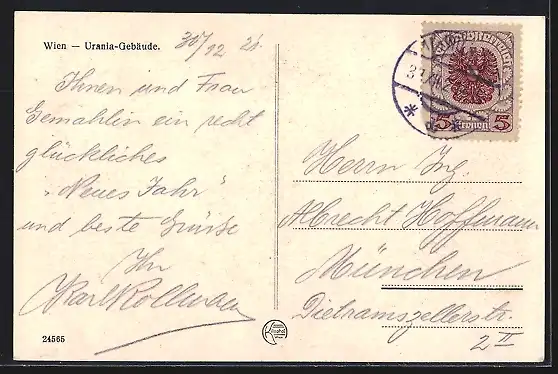 Wien — Urania-Gebäude.
30/12 21.
Ihnen und Frau
Gemahlin ein recht
glückliches
„Neues Jahr“
und beste Grüsse
Ihr
Karl Kollman
24565
5 5
Kronen
Herrn Ing.
Albrecht Hoffmann
München
Dietramszellerstr.
2 II